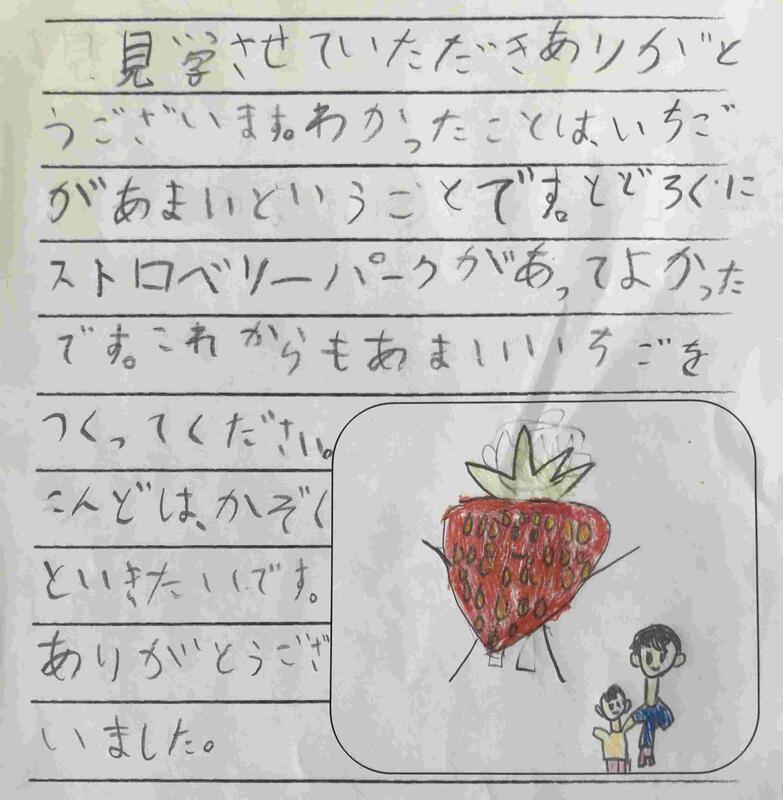 見学させていただきありがと
うございます。わかったことは、いちご
があまいということです。とどろくに
ストロベリーパークがあってよかった
です。これからもあまいいいちごを
つくってください。
こんどは、かぞく
といきたいです。
ありがとうござ
いました。